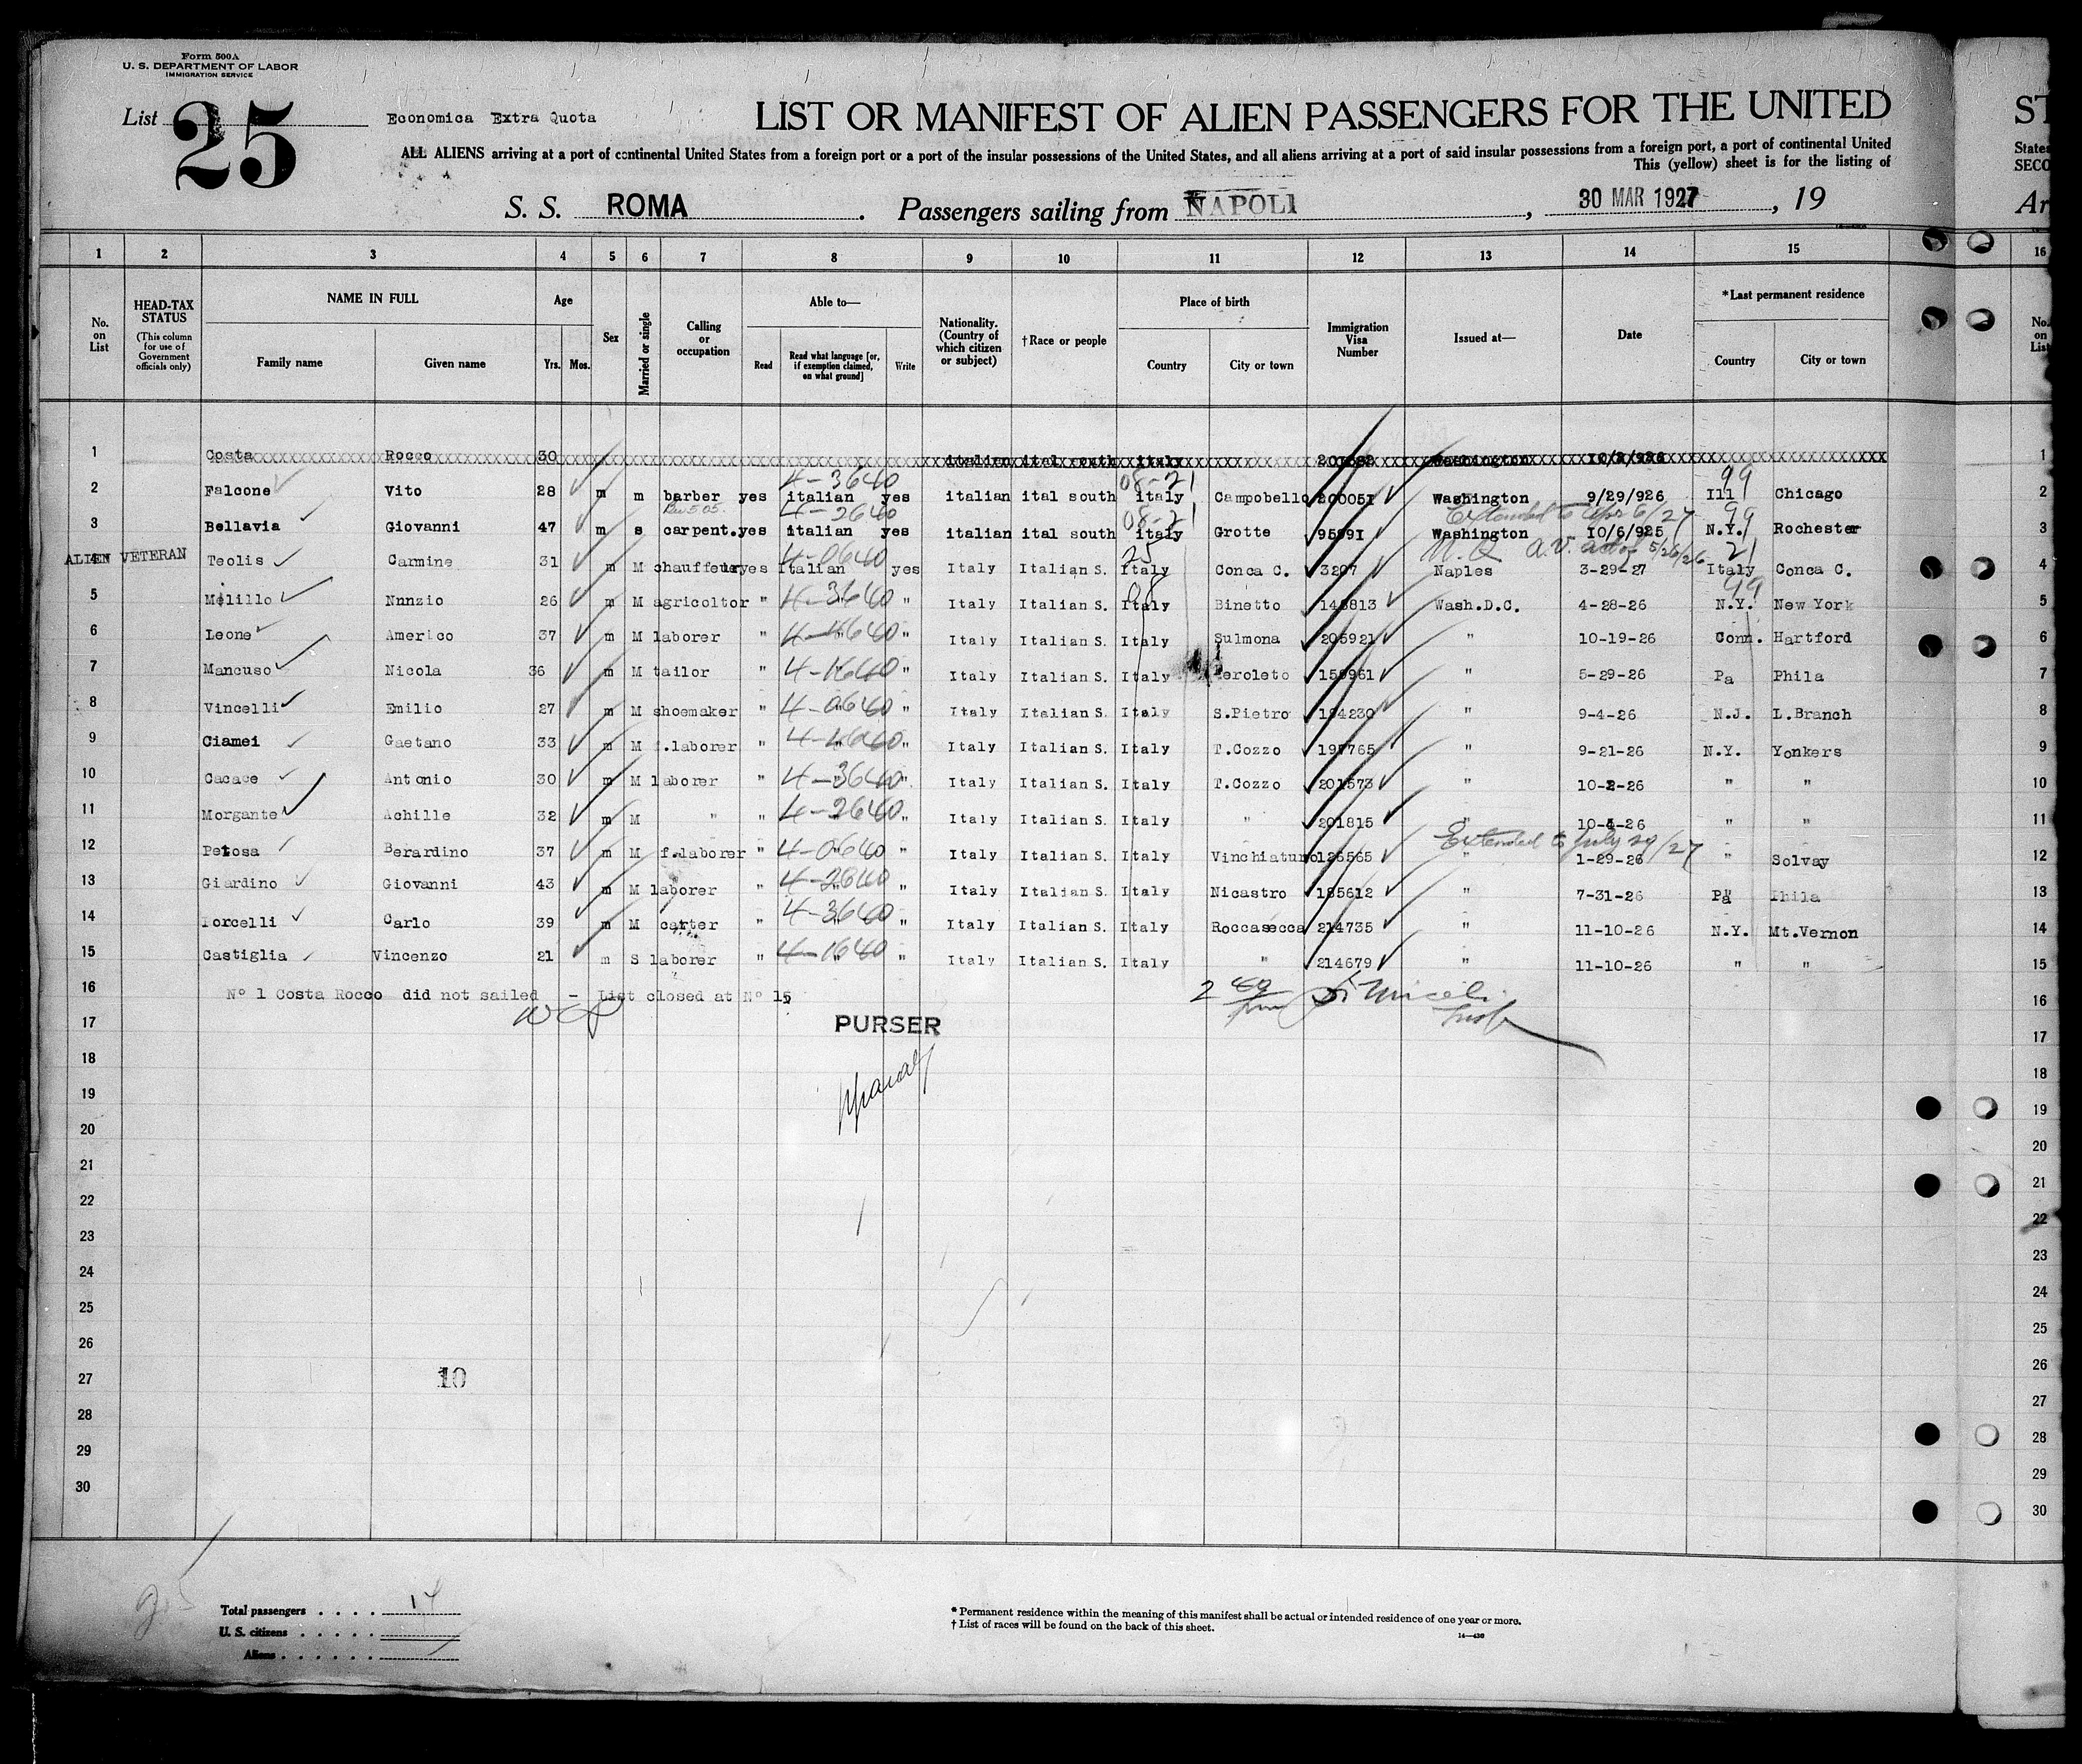 Form 500A
U. S. DEPARTMENT OF LABOR
IMMIGRATION SERVICE
List 25
Economica Extra Quota
LIST OR MANIFEST OF ALIEN PASSENGERS FOR THE UNITED
ST
ALL ALIENS arriving at a port of continental United States from a foreign port or a port of the insular possessions of the United States, and all aliens arriving at a port of said insular possessions from a foreign port, a port of continental United
States
This (yellow) sheet is for the listing of
SECO
S. S. ROMA . Passengers sailing from NAPOLI , 30 MAR 1927 , 19
Ar
1 2 3 4 5 6 7 8 9 10 11 12 13 14 15 16
No. on List
HEAD-TAX STATUS
(This column for use of Government officials only)
NAME IN FULL
Family name Given name
Age
Yrs. Mos.
Sex
Married or single
Calling or occupation
Able to—
Read
Read what language [or, if exemption claimed, on what ground]
Write
Nationality. (Country of which citizen or subject)
†Race or people
Place of birth
Country City or town
Immigration Visa Number
Issued at—
Date
*Last permanent residence
Country City or town
No. on List
1 Costa Rocco 30 italian ital south italy Washington 1
4-3640 08-21 99
2 Falcone Vito 28 m m barber yes italian yes italian ital south italy Campobello 200051 Washington 9/29/926 Ill Chicago 2
4-2640 08-21 Extended to Apr 6/27 99
3 Bellavia Giovanni 47 m s carpent. yes italian yes italian ital south italy Grotte 95991 Washington 10/6/925 N.Y. Rochester 3
4-0640 25 N.Q. A.V. act of 5/26/26 21
ALIEN VETERAN 4 Teolis Carmine 31 m M chauffeur yes Italian yes Italy Italian S. Italy Conca C. 3207 Naples 3-29-27 Italy Conca C. 4
99
5 Melillo Nnnzio 26 m M agricoltor " 4-3640 " Italy Italian S. Italy Binetto 148813 Wash.D.C. 4-28-26 N.Y. New York 5
6 Leone Americo 37 m M laborer " " Italy Italian S. Italy Sulmona 205921 " 10-19-26 Conn. Hartford 6
7 Mancuso Nicola 36 m M tailor " 4-1640 " Italy Italian S. Italy 159961 " 5-29-26 Pa Phila 7
8 Vincelli Emilio 27 m M shoemaker " 4-0640 " Italy Italian S. Italy S.Pietro 194230 " 9-4-26 N.J. L.Branch 8
9 Ciamei Gaetano 33 m M f.laborer " " Italy Italian S. Italy T.Cozzo 197765 " 9-21-26 N.Y. Yonkers 9
10 Cacace Antonio 30 m M laborer " 4-3640 " Italy Italian S. Italy T.Cozzo 201573 " 10-2-26 " " 10
11 Morgante Achille 32 m M " " 4-2640 " Italy Italian S. Italy " 201815 " 10-4-26 " " 11
Extended to July 29/27
12 Petosa Berardino 37 m M f.laborer " 4-0640 " Italy Italian S. Italy Vinchiaturo 126565 " 1-29-26 " Solvay 12
13 Giardino Giovanni 43 m M laborer " 4-2640 " Italy Italian S. Italy Nicastro 185612 " 7-31-26 Pa Phila 13
14 Porcelli Carlo 39 m M carter " 4-3640 " Italy Italian S. Italy Roccasecca 214735 " 11-10-26 N.Y. Mt.Vernon 14
15 Castiglia Vincenzo 21 m S laborer " 4-1640 " Italy Italian S. Italy " 214679 " 11-10-26 " " 15
16 Nº 1 Costa Rocco did not sailed - List closed at Nº 15 16
17 PURSER 17
18 18
19 19
20 20
21 21
22 22
23 23
24 24
25 25
26 26
27 10 27
28 28
29 29
30 30
Total passengers . . . . 14
U. S. citizens . . . . .
Aliens . . . . . .
* Permanent residence within the meaning of this manifest shall be actual or intended residence of one year or more.
† List of races will be found on the back of this sheet.
14—430